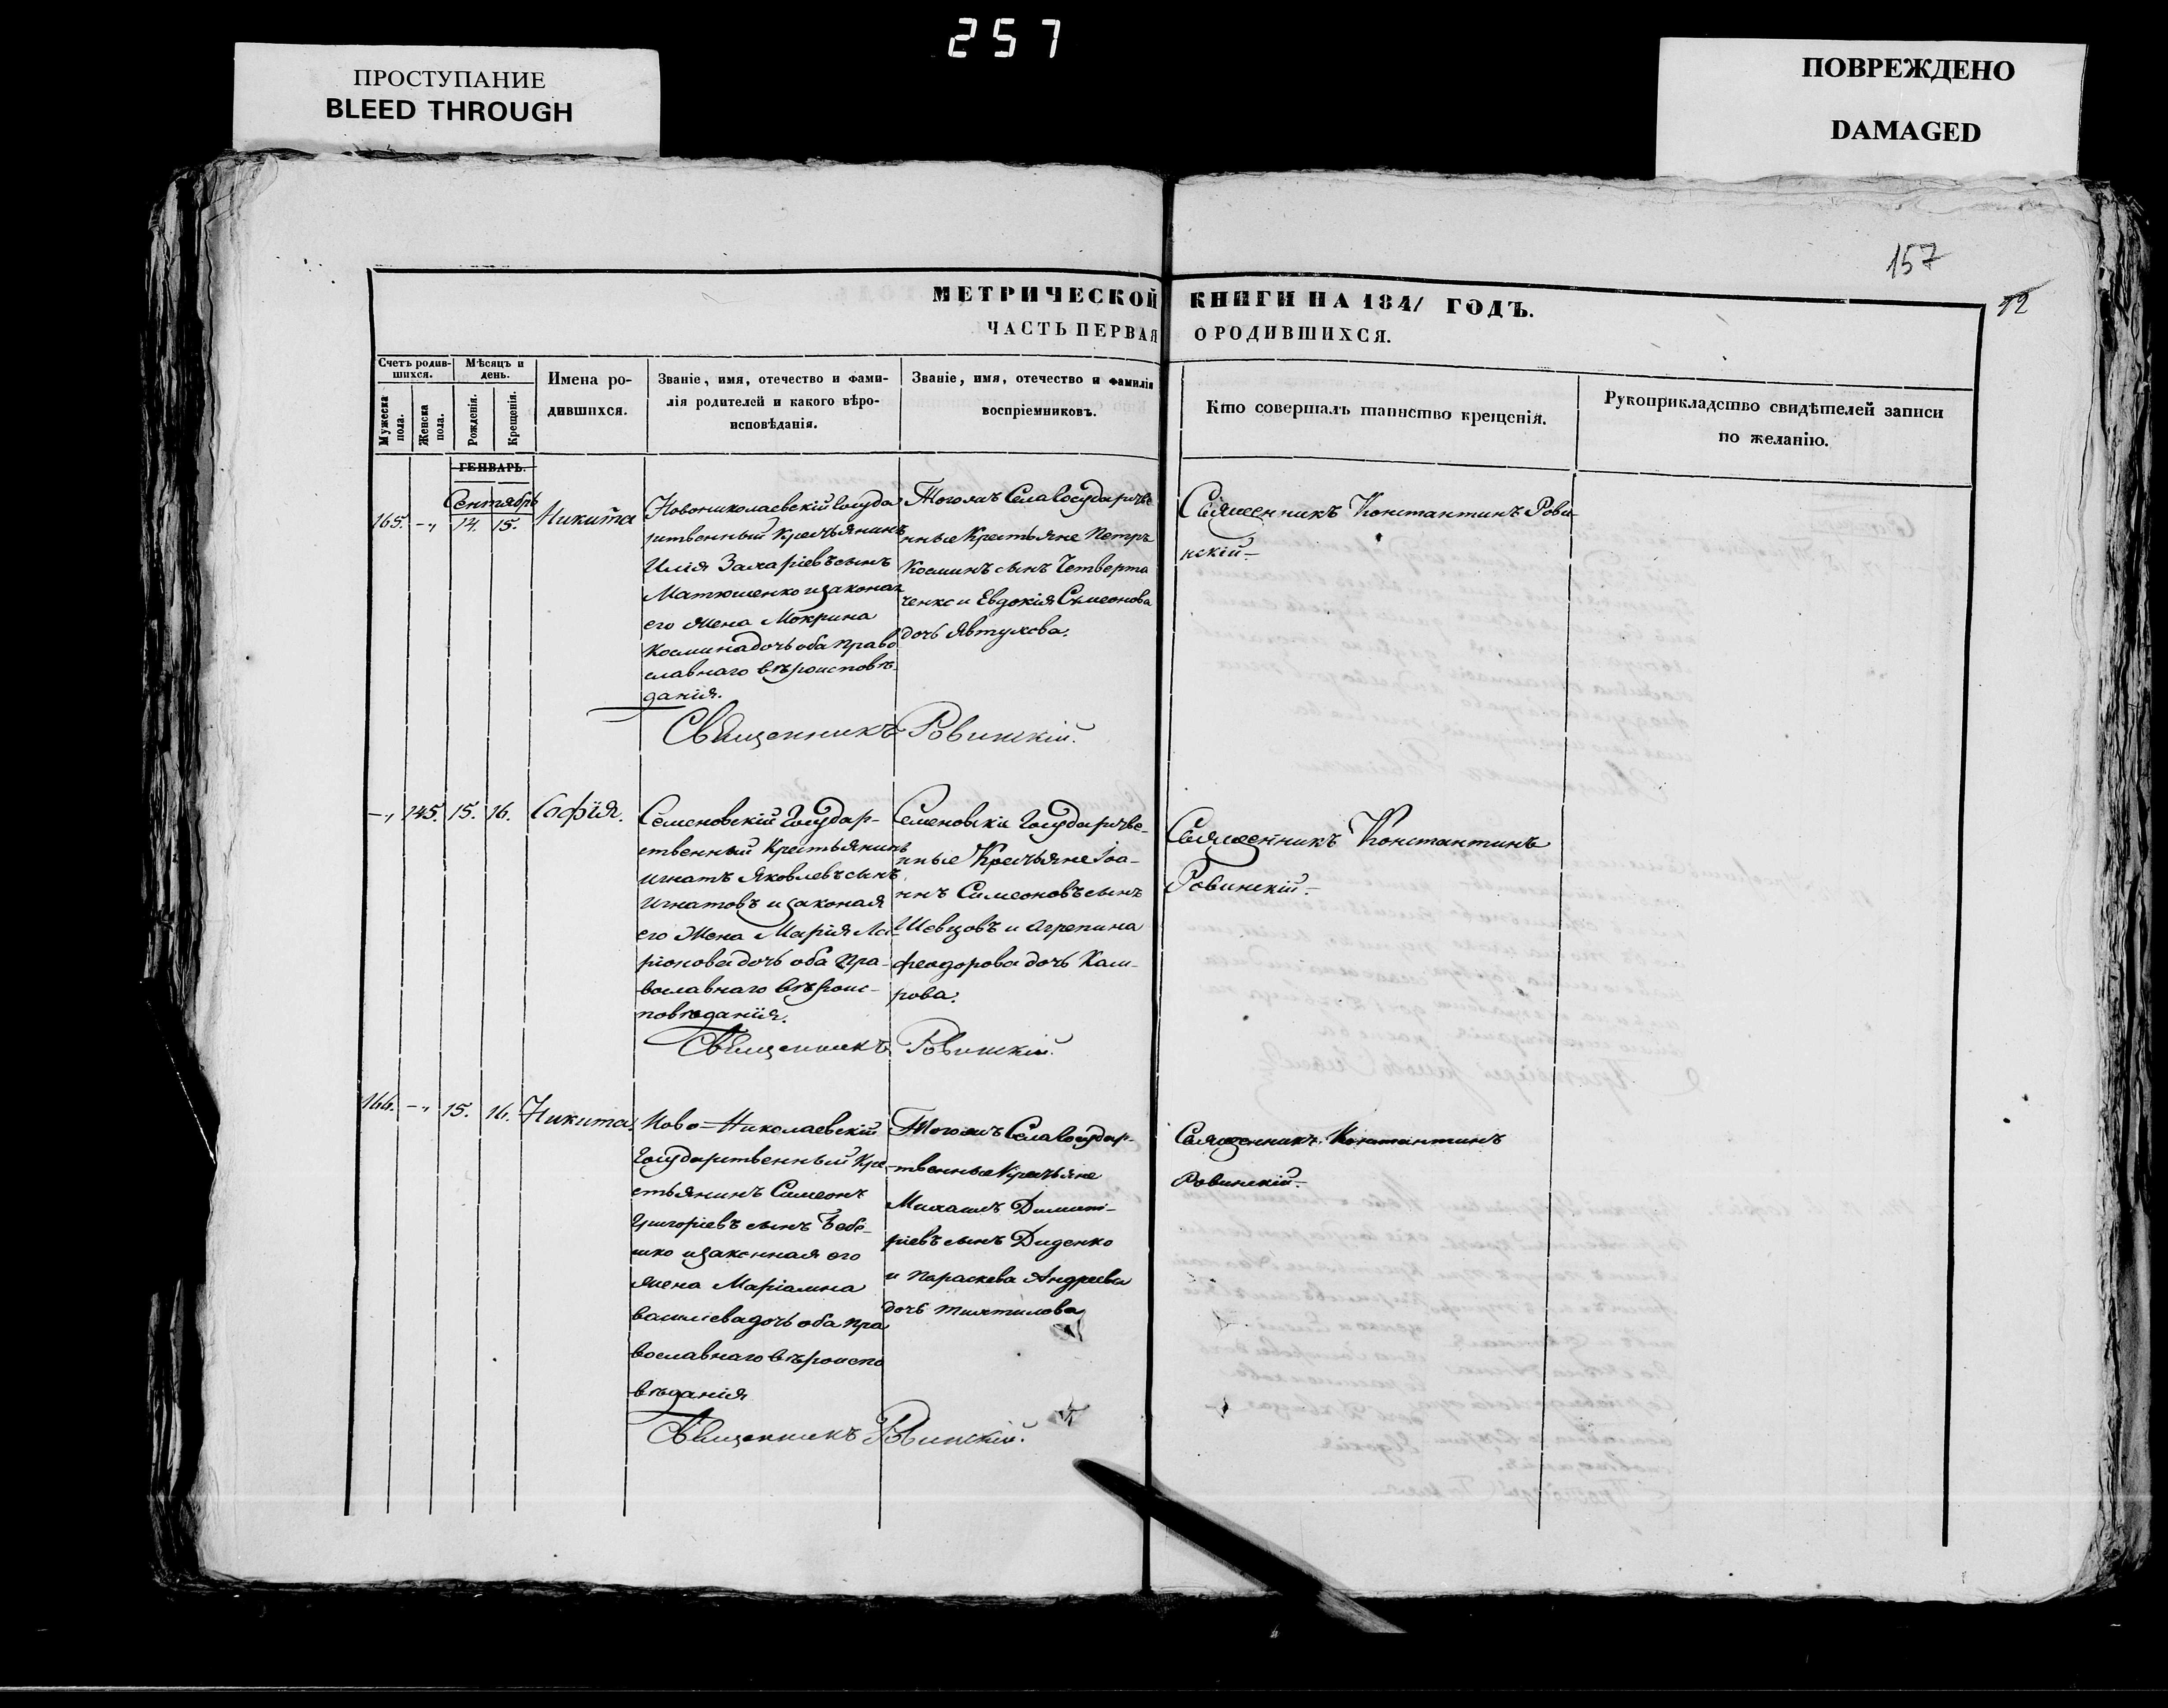 257
ПРОСТУПАНИЕ
BLEED THROUGH
ПОВРЕЖДЕНО
DAMAGED
157
12
МЕТРИЧЕСКОЙ КНИГИ НА 1841 ГОДЪ.
ЧАСТЬ ПЕРВАЯ О РОДИВШИХСЯ.
Счетъ родив-
шихся.
Мужеска
пола.
Женска
пола.
Мѣсяцъ и
день.
Рожденія.
Крещенія.
Имена ро-
дившихся.
Званіе, имя, отечество и фами-
лія родителей и какого вѣро-
исповѣданія.
Званіе, имя, отечество и фамилія
воспріемниковъ.
Кто совершалъ таинство крещенія.
Рукоприкладство свидѣтелей записи
по желанію.
ГЕНВАРЬ.
Сентябрь
165. -„ 14. 15. Никита
Новониколаевскій Госуда
рственный Крестьянинъ
Илія Захаріевъ сынъ
Матюшенко и законая
его жена Мокрина
Космина дочь оба право
славнаго вѣроисповѣ-
данія.
Тогожъ Села Государстве
нные Крестьяне Петръ
Косминъ сынъ Четверта
ченко и Евдокія Симеонова
дочь Явтухова.
Священникъ Константинъ Рови
нскій-
Священникъ Ровинскій.
-„ 145. 15. 16. Софія.
Семеновскій Государ-
ственный Крестьянинъ
Игнатъ Яковлевъ сынъ
Игнатовъ и законая
его жена Марія Ла-
ріонова дочь оба Пра-
вославнаго вѣроис-
повѣданія.
Семеновскіе Государстве-
нные Крестьяне Іоа-
ннъ Симеоновъ сынъ
Шевцовъ и Агрепина
Феодорова дочь Каш-
рова.
Священникъ Константинъ
Ровинскій.-
Священникъ Ровинскій.
166. -„ 15. 16. Никита
Ново-Николаевскій
Государственный Кре
стьянинъ Симеонъ
Григоріевъ сынъ Бебе-
шко и законная его
жена Маріамна
Василіева дочь оба пра
вославнаго вѣроиспо
вѣданія
Тогожъ Села Государ-
ственные Крестьяне
Михаилъ Димит-
ріевъ сынъ Диденко
и Параскева Андреева
дочь
Священникъ Константинъ
Ровинскій.-
Священникъ Ровинскій.